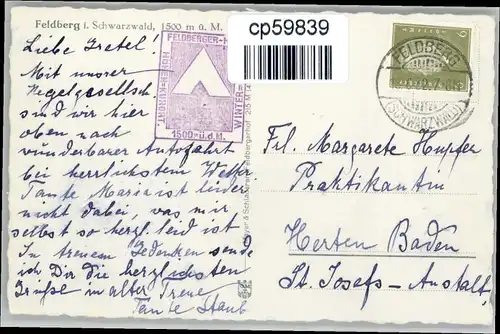 Feldberg i. Schwarzwald, 1500 m ü. M.
cp59839
Liebe Gretel!
Mit unser
Kegelgesellsch
sind wir hier
oben nach
wunderbarer Autofahrt
bei herrlichstem Wetter.
Tante Maria ist leider
nicht dabei, was mir
selbst so herzl. leid ist
In treuem Gedenken sende
ich Dir die herzlichsten
Grüße in alter Treue
Tante Staub
FELDBERGER-
HÖHEN-KURORT
WINTER
1500 m ü.d.M.
FELDBERG
(SCHWARZWALD)
6
Frl. Margarete Hupfer
Praktikantin
Herten Baden
St. Josefs-Anstalt,